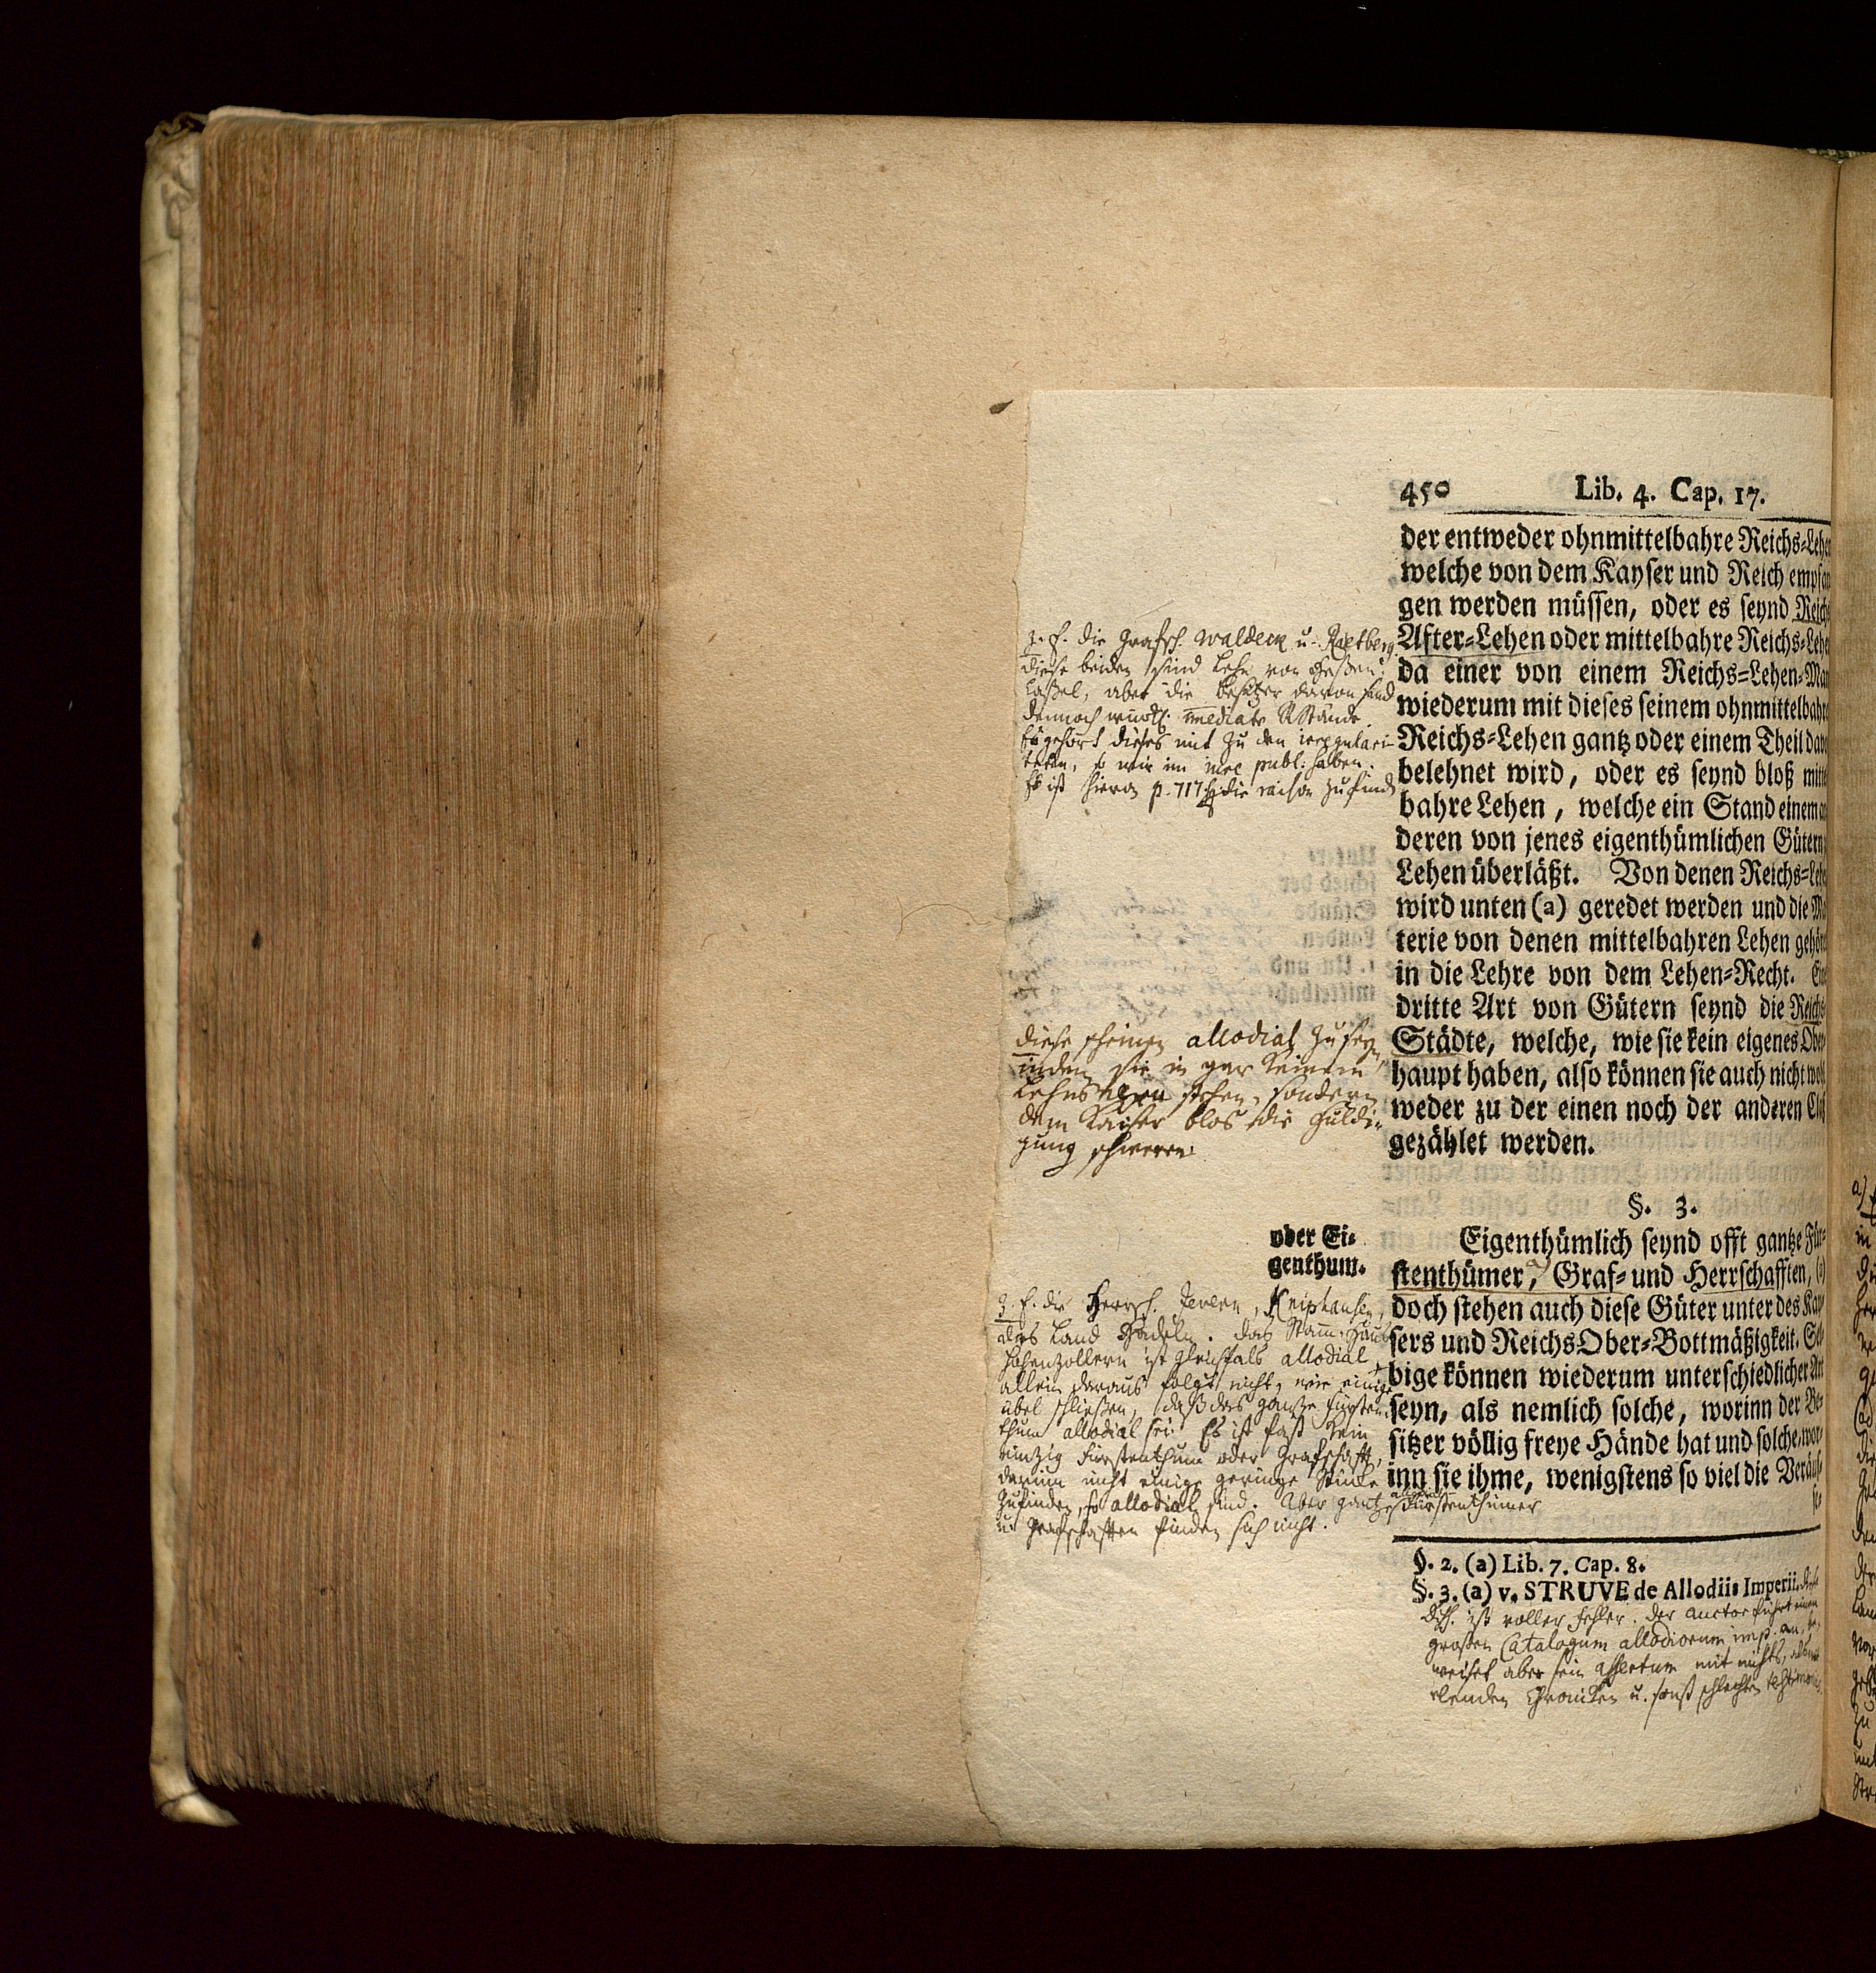 450 Lib. 4. Cap. 17.
der entweder ohnmittelbahre Reichs-Lehen
welche von dem Kayser und Reich empfan
gen werden müssen, oder es seynd Reichs
After-Lehen oder mittelbahre Reichs-Lehen
da einer von einem Reichs-Lehen-Man
wiederum mit dieses seinem ohnmittelbahre
Reichs-Lehen gantz oder einem Theil davo
belehnet wird, oder es seynd bloß mittel
bahre Lehen, welche ein Stand einem an
deren von jenes eigenthümlichen Gütern
Lehen überläßt. Von denen Reichs-Lehe
wird unten (a) geredet werden und die Ma
terie von denen mittelbahren Lehen gehört
in die Lehre von dem Lehen-Recht. Eine
dritte Art von Gütern seynd die Reichs
Städte, welche, wie sie kein eigenes Ober
haupt haben, also können sie auch nicht wohl
weder zu der einen noch der anderen Claß
gezählet werden.
z. E. die Grafsch. Waldeck u. Rietberg.
diese beiden sind Lehn von Heßen-
Caßel, aber die Besitzer davon sind
dennoch immediate RStände.
Es gehört dieses mit zu den irregulari-
teten, so wir im iure publ. haben.
Es ist hiervon p. 717 die raison zu find
diese scheinen allodial zu seyn
indem sie in gar keinem
Lehns nexu stehen, sondern
dem Kaiser blos die Huldi-
gung schweren.
§. 3.
oder Ei-
genthum.
Eigenthümlich seynd offt gantze Für-
stenthümer, Graf- und Herrschafften, (a)
doch stehen auch diese Güter unter des Kay
sers und Reichs Ober-Bottmäßigkeit. Sel
bige können wiederum unterschiedlicher Art
seyn, als nemlich solche, worinn der Be-
sitzer völlig freye Hände hat und solche, wor-
inn sie ihme, wenigstens so viel die Veräuss
z. E. die Herrsch. Jevern, Kniphausen,
das Land Hadeln. das Stam-Haus
Hohenzollern ist gleichfals allodial,
allein daraus folgt nicht, wie einige
übel schließen, daß das gantze Fürsten-
thum allodial sei. Es ist fast kein
eintzig Fürstenthum oder Grafschafft,
darinn nicht einige geringe Stücke
zu finden, so allodial sind. Aber gantze allodial Fürstenthümer
u. Grafschafften finden sich nicht.
§. 2. (a) Lib. 7. Cap. 8.
§. 3. (a) v. STRUVE de Allodiis Imperii. diese
ist voller Fehler. Der Auctor führt einen
großen Catalogum allodiorum imp. an, be-
weiset aber sein assertum mit nichts, als mit
elenden Chronicken u. sonst schlechten